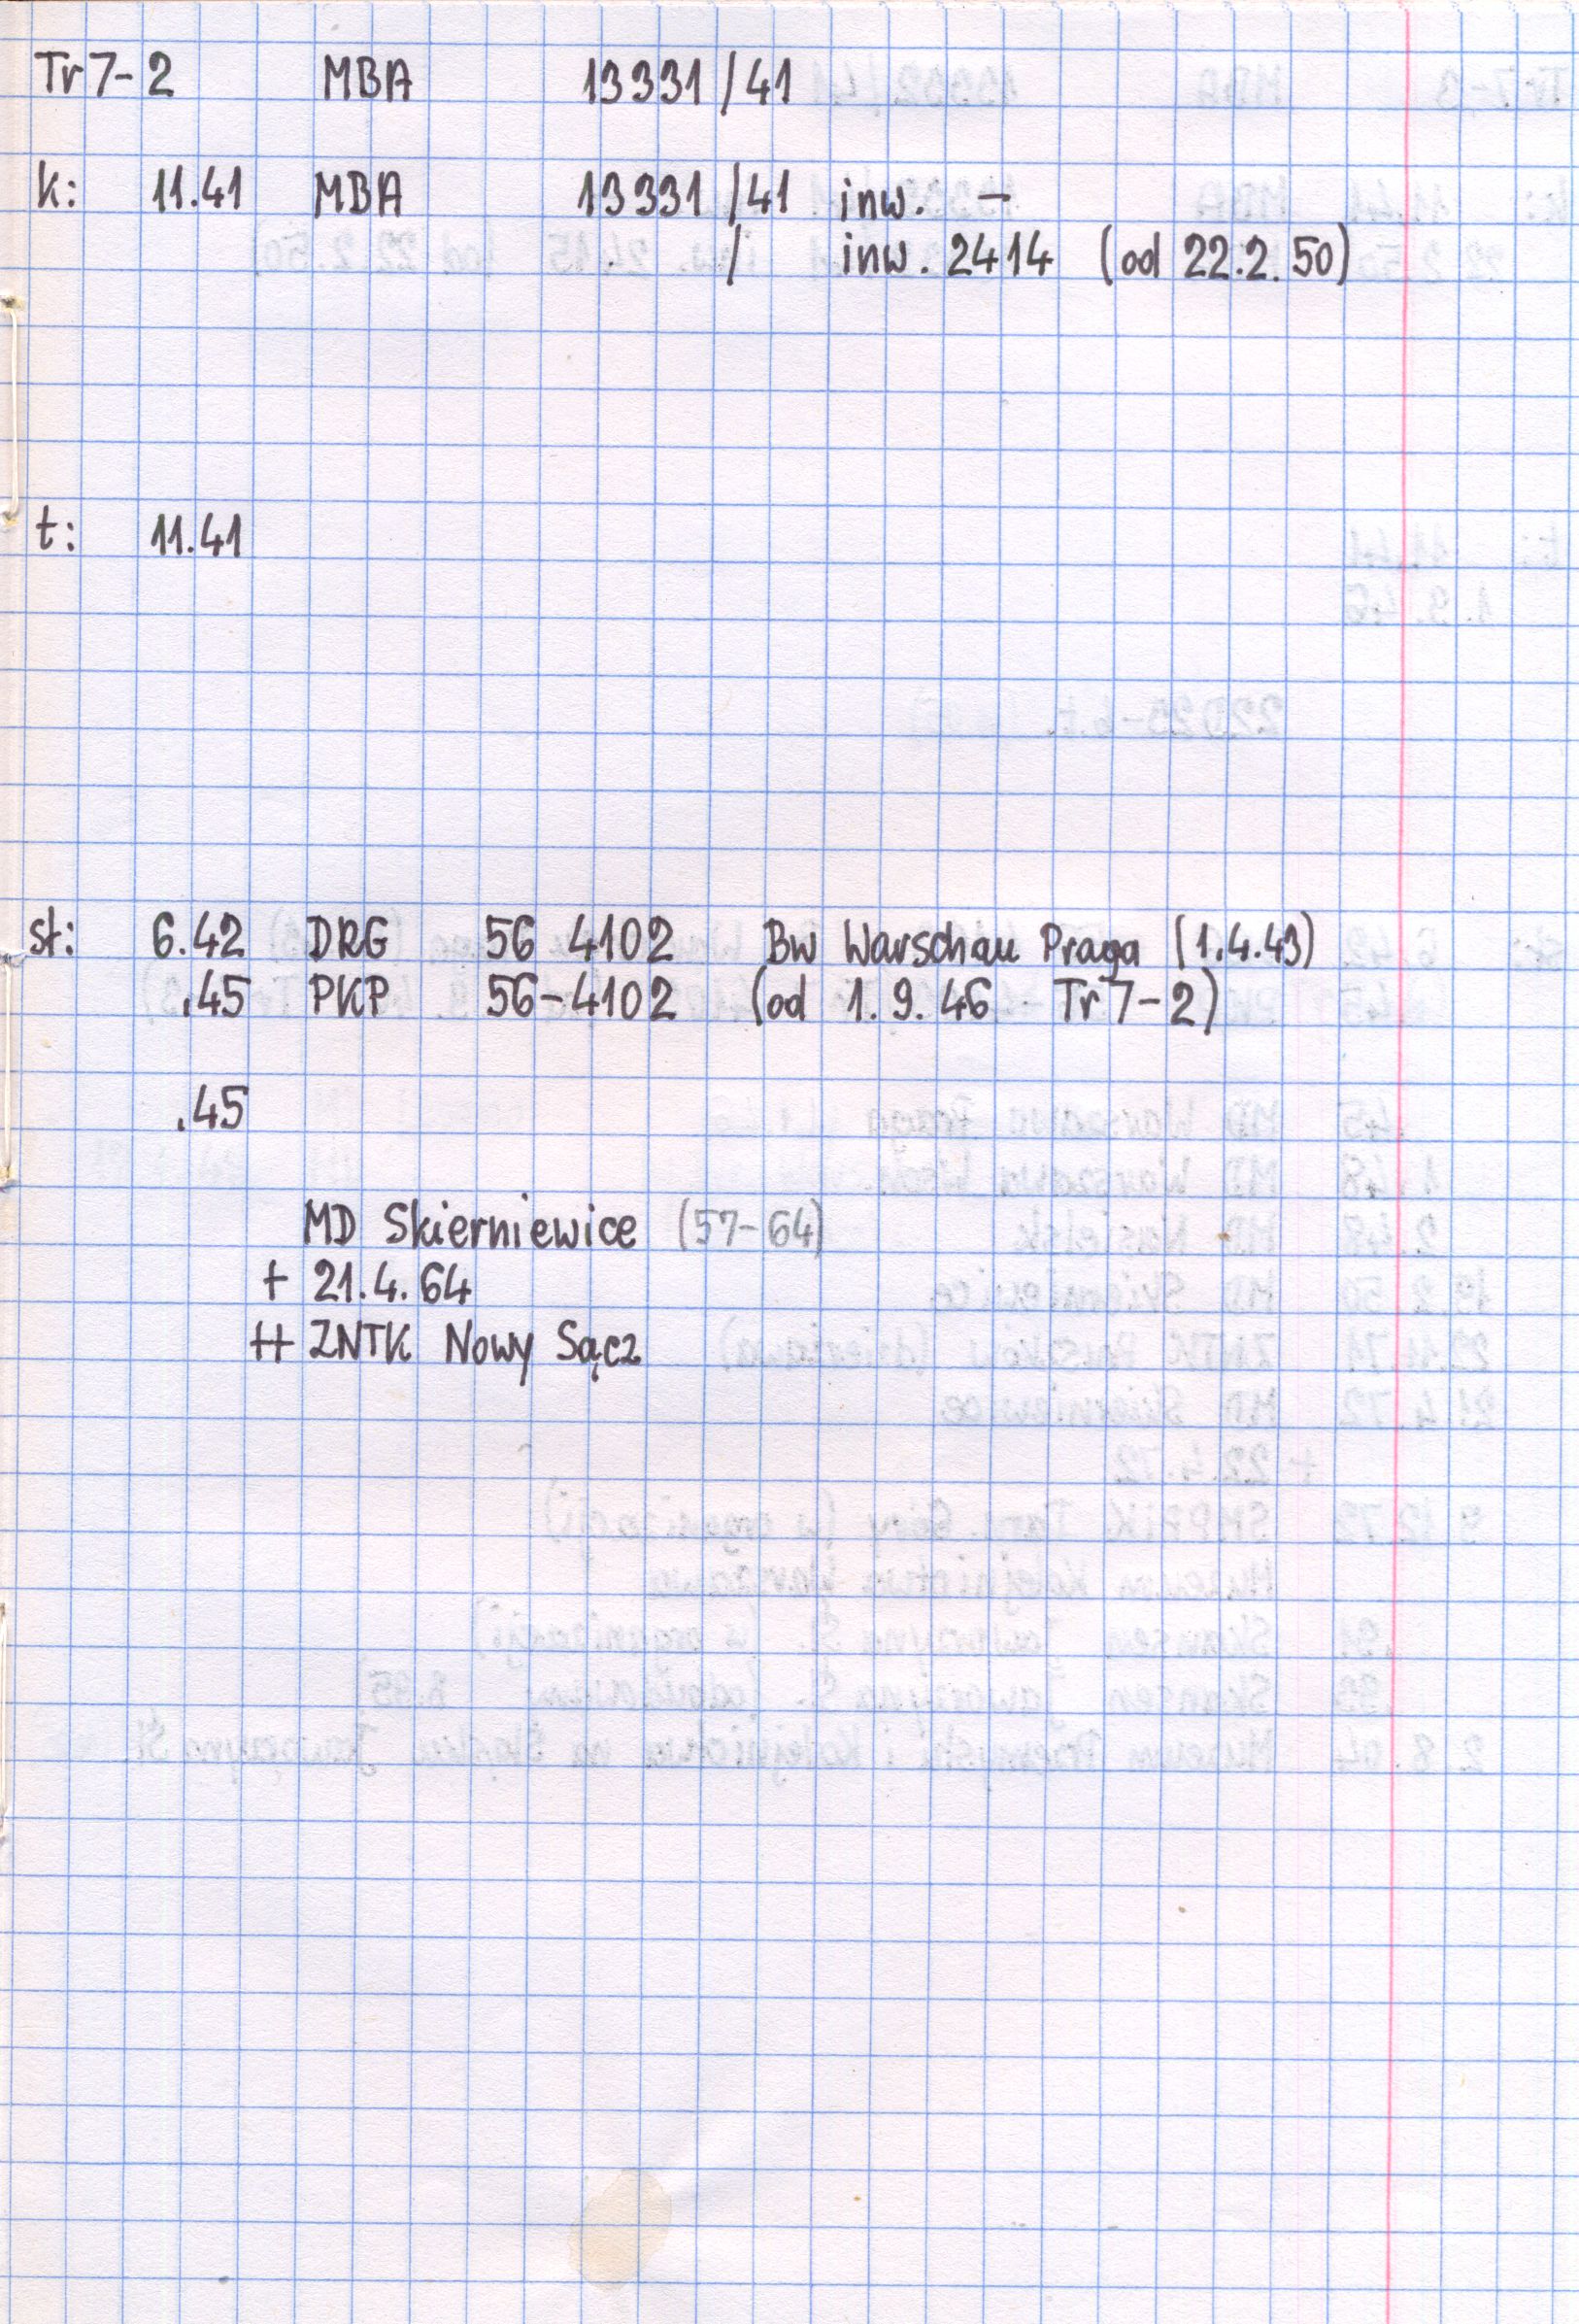 Tr7-2 MBA 13331/41
k: 11.41 MBA 13331/41 inw. -
/ inw. 2414 (od 22.2.50)
t: 11.41
st: 6.42 DRG 56 4102 Bw Warschau Praga (1.4.43)
.45 PKP 56-4102 (od 1.9.46 Tr7-2)
.45
MD Skierniewice (57-64)
+ 21.4.64
++ ZNTK Nowy Sącz